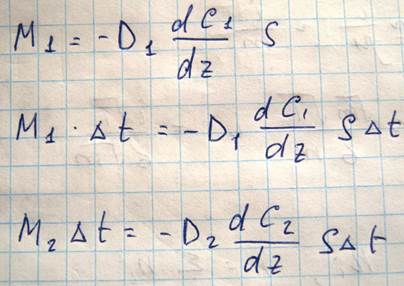 M₁ = -D₁ dC₁/dz S
M₁ · Δt = -D₁ dC₁/dz S Δt
M₂ Δt = -D₂ dC₂/dz S Δt